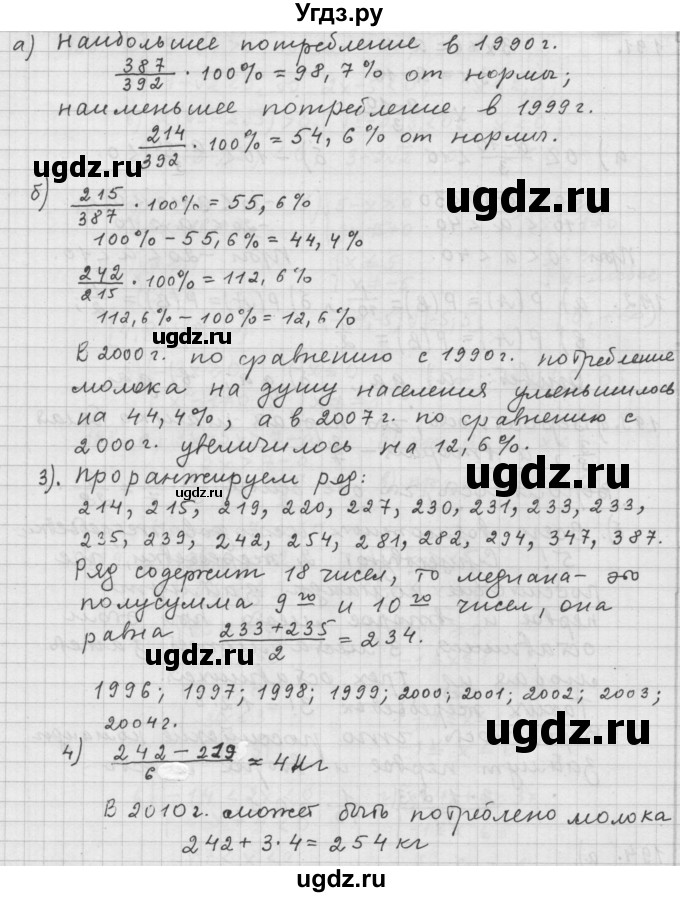 Угдз.ру
а) Наибольшее потребление в 1990г.
387/392 · 100% = 98,7% от нормы;
наименьшее потребление в 1999г.
214/392 · 100% = 54,6% от нормы.
ugdz.ru
ugdz.ru
б) 215/387 · 100% = 55,6%
100% - 55,6% = 44,4%
242/215 · 100% = 112,6%
112,6% - 100% = 12,6%
ugdz.ru
В 2000г. по сравнению с 1990г. потребление
молока на душу населения уменьшилось
на 44,4%, а в 2007г. по сравнению с
2000г. увеличилось на 12,6%.
ugdz.ru
3). Проранжируем ряд:
ugdz.ru
214, 215, 219, 220, 227, 230, 231, 233, 233,
235, 239, 242, 254, 281, 282, 294, 347, 387.
Ряд содержит 18 чисел, то медиана - это
полусумма 9го и 10го чисел, она
равна (233+235)/2 = 234.
ugdz.ru
1996; 1997; 1998; 1999; 2000; 2001; 2002; 2003;
2004г.
ugdz.ru
4) (242 - 219)/6 ≈ 4кг
ugdz.ru
В 2010г. может быть потреблено молока
242 + 3·4 = 254 кг
ugdz.ru
ugdz.ru